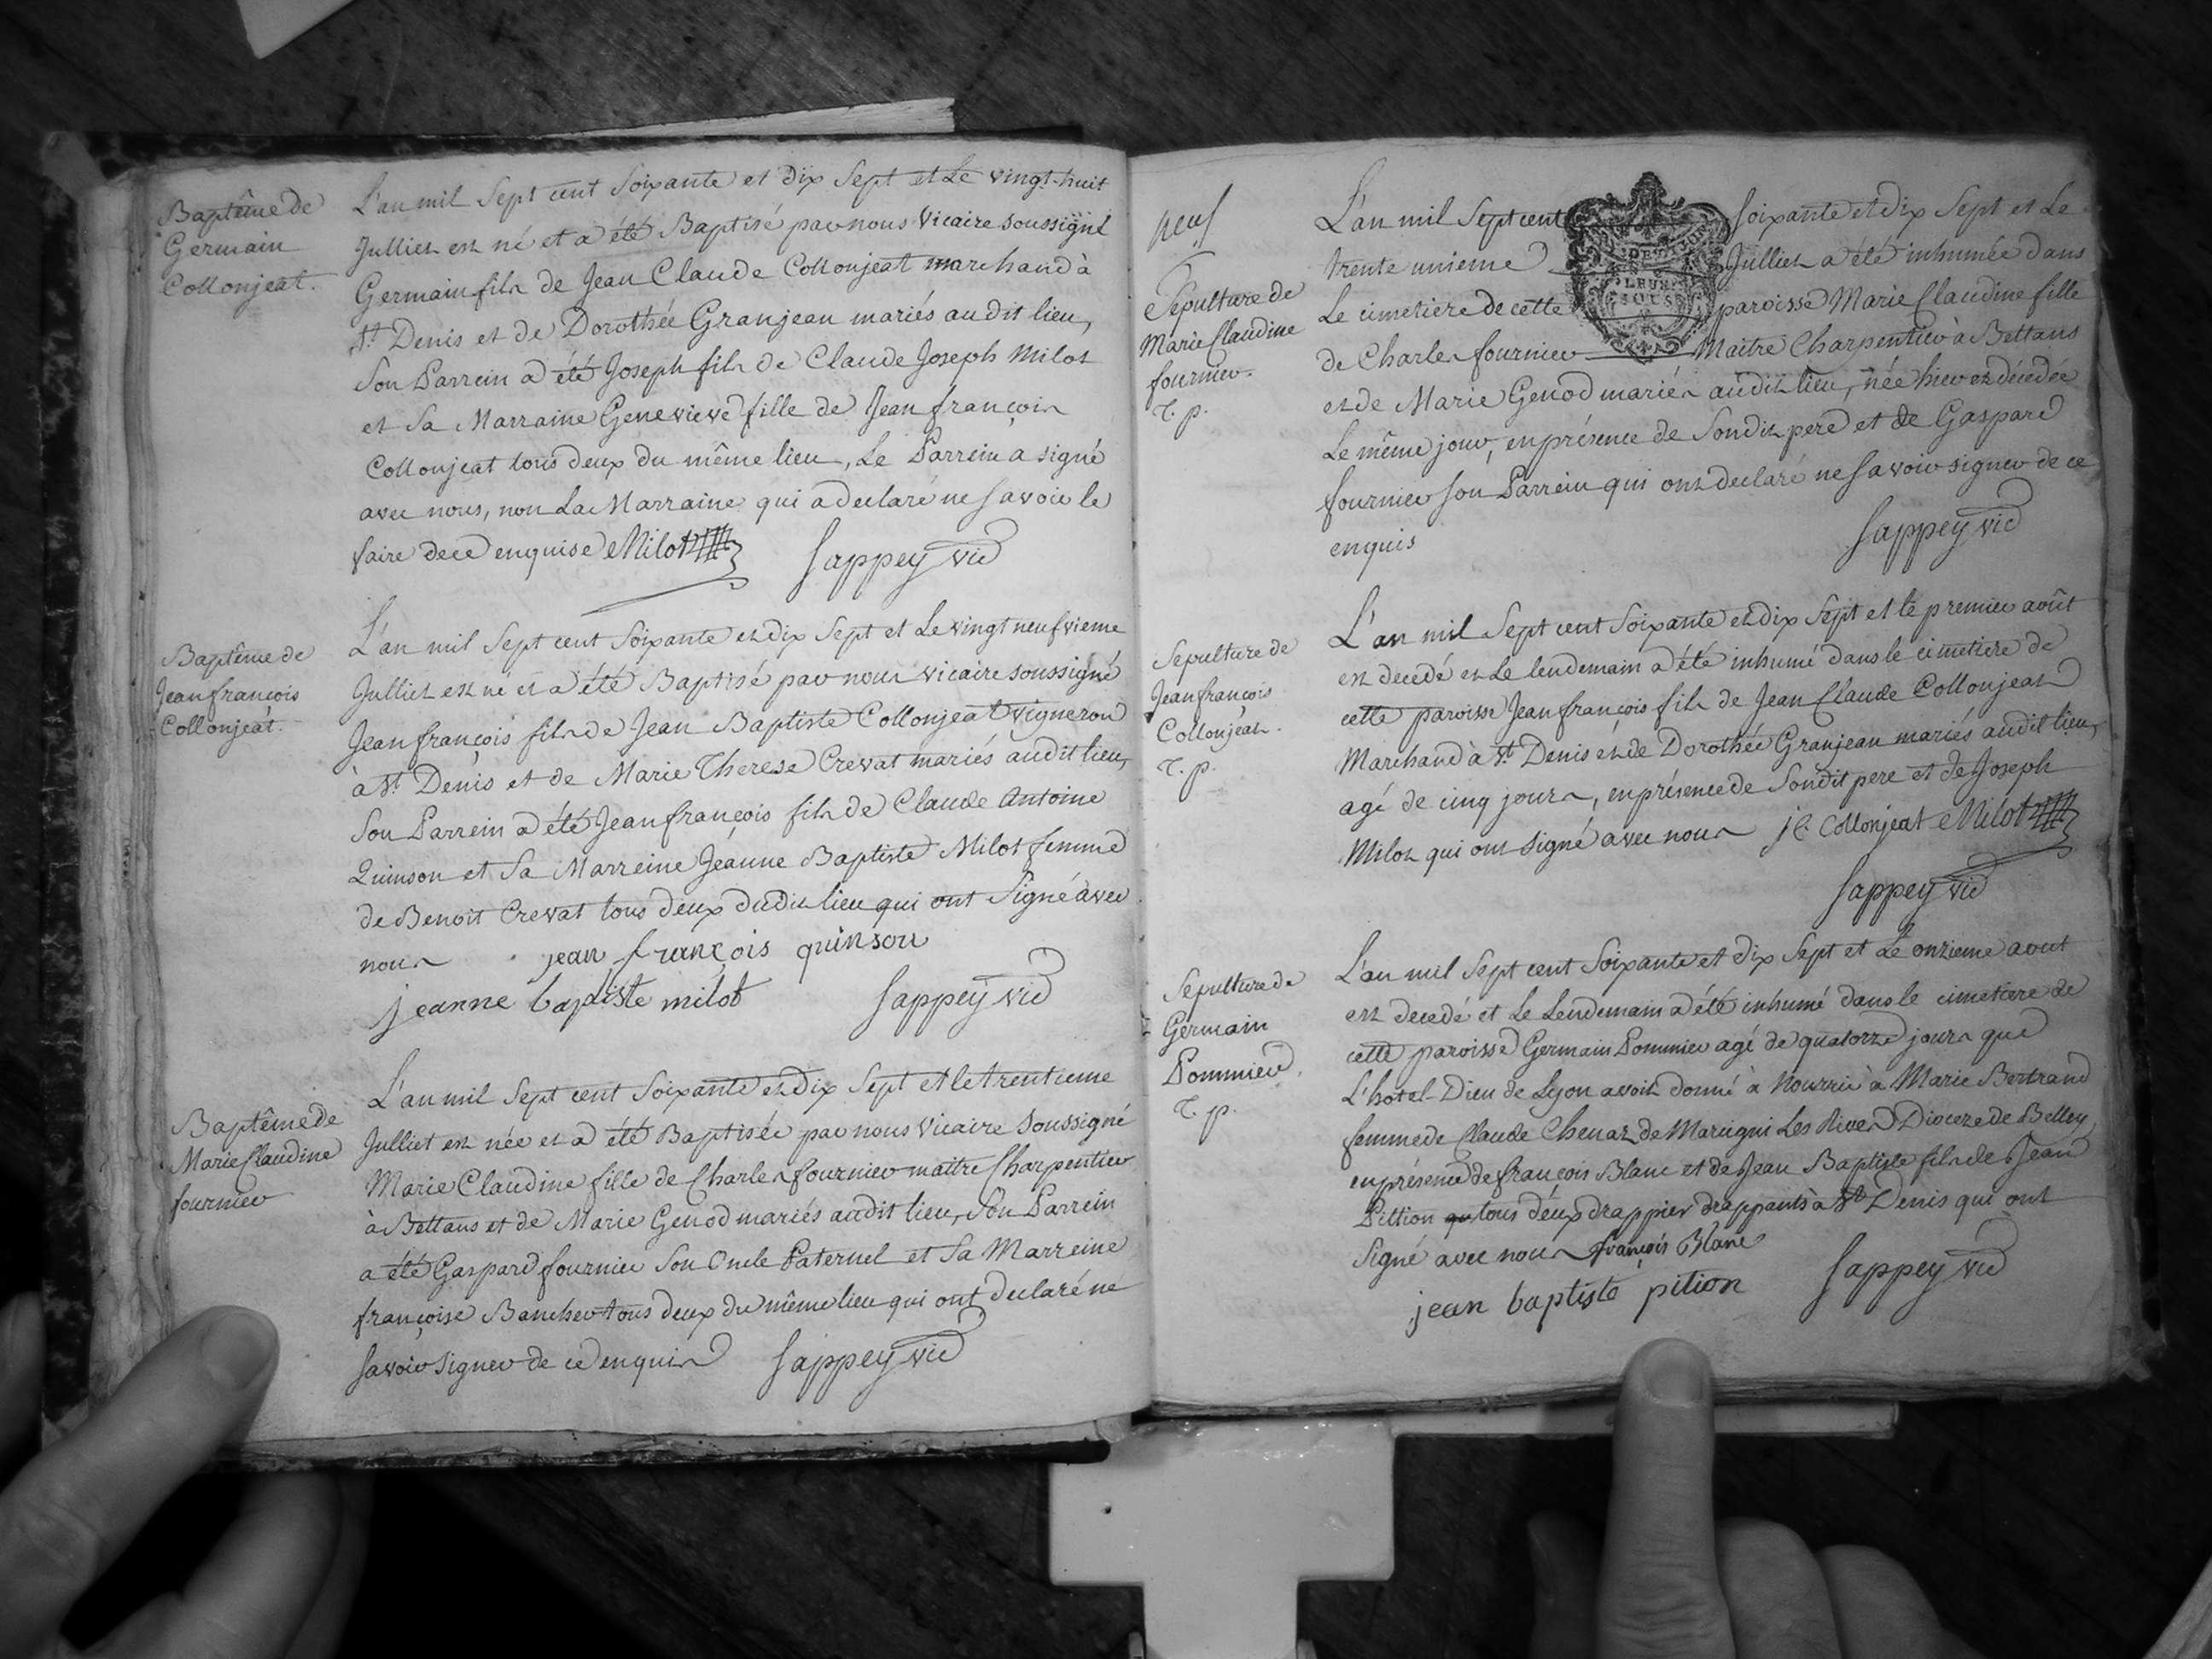 Baptême de
Germain
Collonjeat.
L'an mil Sept cent Soixante et dix Sept et Le vingt-huit
Julliet est né et a été Baptisé par nous Vicaire soussigné
Germain fils de Jean Claude Collonjeat marchand à
St. Denis et de Dorothée Granjean mariés au dit lieu,
Son Parrein a été Joseph fils de Claude Joseph Milot
et Sa Marraine Genevieve fille de Jean françois
Collonjeat tous deux du même lieu, Le Parrein a signé
avec nous, non La Marraine qui a declaré ne Savoir le
faire de ce enquise Milot Sappey vic
Baptême de
Jean françois
Collonjeat.
L'an mil Sept cent Soixante et dix Sept et Le vingt neufvieme
Julliet est né et a été Baptisé par nous vicaire soussigné
Jean françois fils de Jean Baptiste Collonjeat Vigneron
à St. Denis et de Marie Therese Crevat mariés audit lieu,
Son Parrein a été Jean françois fils de Claude Antoine
Quinson et Sa Marreine Jeanne Baptiste Milot femme
de Benoit Crevat tous deux dudit lieu qui ont Signé avec
nous jean françois quinson
jeanne baptiste milot Sappey vic
Baptême de
Marie Claudine
fournier
L'an mil Sept cent Soixante et dix Sept et le trentieme
Julliet est née et a été Baptisée par nous Vicaire Soussigné
Marie Claudine fille de Charles fournier maitre Charpentier
à Bettans et de Marie Genod mariés audit lieu, Son Parrein
a été Gaspard fournier Son Oncle Paternel et Sa Marreine
françoise Bancher tous deux du même lieu qui ont declaré ne
Savoir Signer de ce enquis Sappey vic
neuf
Sépulture de
Marie Claudine
fournier.
L'an mil Sept cent Soixante et dix Sept et Le
trente unieme Julliet a été inhumée dans
Le cimetiere de cette paroisse Marie Claudine fille
de Charles fournier Maitre Charpentier à Bettans
et de Marie Genod mariés audit lieu, née hier et décédée
Le même jour, en présence de Sondit pere et de Gaspard
fournier Son Parrein qui ont declaré ne Savoir signer de ce
enquis Sappey vic
Sepulture de
Jean françois
Collonjeat.
L'an mil Sept cent Soixante et dix Sept et le premier août
est decedé et Le lendemain a été inhumé dans le cimetiere de
cette paroisse Jean françois fils de Jean Claude Collonjeat
Marchand à St. Denis et de Dorothée Granjean mariés audit lieu,
agé de cinq jours, en présence de Sondit pere et de Joseph
Milot qui ont signé avec nous j C. Collonjeat Milot
Sappey vic
Sepulture de
Germain
Pommier.
L'an mil Sept cent Soixante et dix Sept et Le onzieme aout
est decedé et Le Lendemain a été inhumé dans le cimetiere de
cette paroisse Germain Pommier agé de quatorze jours que
L'hotel-Dieu de Lyon avoit donné à nourrir à Marie Bertrand
femme de Claude Chenaz de Marcigni Les Rives Dioceze de Belley
en présence de françois Blanc et de Jean Baptiste fils de Jean
Pittion tous deux drappier drappants à St. Denis qui ont
Signé avec nous françois Blanc
jean baptiste pition Sappey vic